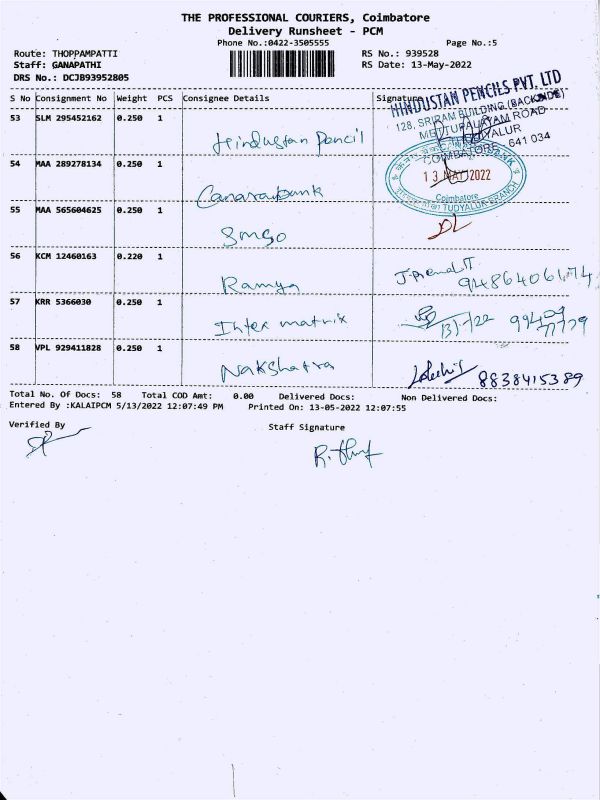 THE PROFESSIONAL COURIERS, Coimbatore
Delivery Runsheet - PCM
Phone No.:0422-3505555 Page No.:5
Route: THOPPAMPATTI RS No.: 939528
Staff: GANAPATHI RS Date: 13-May-2022
DRS No.: DCJB93952805
S No Consignment No Weight PCS Consignee Details Signature
HINDUSTAN PENCILS PVT. LTD
128, SRIRAM BUILDING (BACKSIDE)
METTUPALAYAM ROAD
COIMBATORE - 641 034
53 SLM 295452162 0.250 1 Hindustan Pencil
54 MAA 289278134 0.250 1 Canarabank
13 MAY 2022
Coimbatore
TUDYALUR BRANCH
55 MAA 565604625 0.250 1 SMSO
56 KCM 12460163 0.220 1 Ramya
57 KRR 5366030 0.250 1 Intex matrix 13/5/22
58 VPL 929411828 0.250 1 Nakshatra 8838415389
Total No. Of Docs: 58 Total COD Amt: 0.00 Delivered Docs: Non Delivered Docs:
Entered By :KALAIPCM 5/13/2022 12:07:49 PM Printed On: 13-05-2022 12:07:55
Verified By Staff Signature